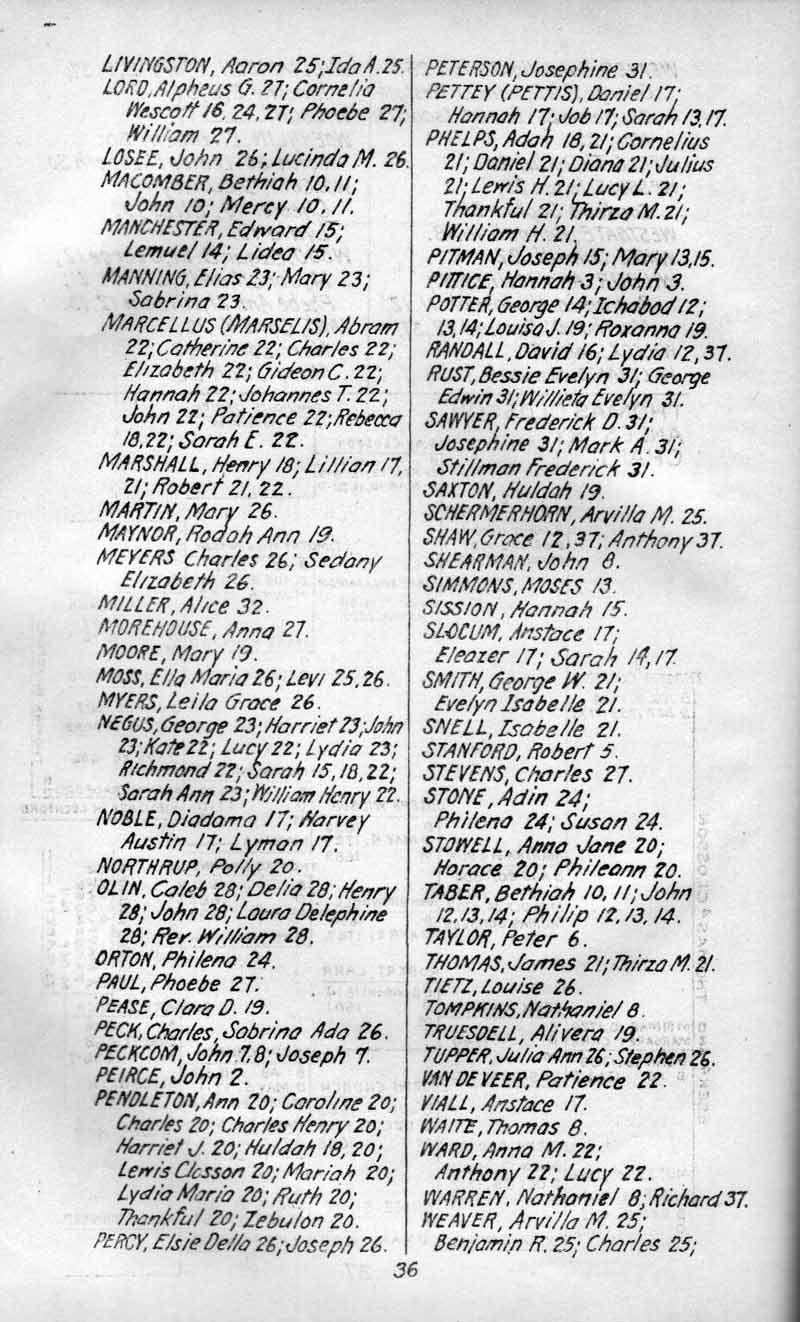 LIVINGSTON, Aaron 25; Ida A. 25.
LORD, Alpheus G. 27; Cornelia
Wescott 16, 24, 27; Phoebe 27;
William 27.
LOSEE, John 26; Lucinda M. 26.
MACOMBER, Bethiah 10, 11;
John 10; Mercy 10, 11.
MANCHESTER, Edward 15;
Lemuel 14; Lidea 15.
MANNING, Elias 23; Mary 23;
Sabrina 23.
MARCELLUS (MARSELIS), Abram
22; Catherine 22; Charles 22;
Elizabeth 22; Gideon C. 22;
Hannah 22; Johannes T. 22;
John 22; Patience 22; Rebecca
18, 22; Sarah E. 22.
MARSHALL, Henry 18; Lillian 17,
21; Robert 21, 22.
MARTIN, Mary 26.
MAYNOR, Rodah Ann 19.
MEYERS Charles 26; Sedany
Elizabeth 26.
MILLER, Alice 32.
MOREHOUSE, Anna 27.
MOORE, Mary 19.
MOSS, Ella Maria 26; Levi 25, 26.
MYERS, Leila Grace 26.
NEGUS, George 23; Harriet 23; John
23; Kate 22; Lucy 22; Lydia 23;
Richmond 22; Sarah 15, 18, 22;
Sarah Ann 23; William Henry 22.
NOBLE, Diadama 17; Harvey
Austin 17; Lyman 17.
NORTHRUP, Polly 20.
OLIN, Caleb 28; Delia 28; Henry
28; John 28; Laura Delephine
28; Rev. William 28.
ORTON, Philena 24.
PAUL, Phoebe 27.
PEASE, Clara D. 19.
PECK, Charles, Sabrina Ada 26.
PECKCOM, John 7, 8; Joseph 7.
PEIRCE, John 2.
PENDLETON, Ann 20; Caroline 20;
Charles 20; Charles Henry 20;
Harriet J. 20; Huldah 18, 20;
Lewis Closson 20; Mariah 20;
Lydia Maria 20; Ruth 20;
Thankful 20; Zebulon 20.
PERCY, Elsie Della 26; Joseph 26.
PETERSON, Josephine 31.
PETTEY (PETTIS), Daniel 17;
Hannah 17; Job 17; Sarah 13, 17.
PHELPS, Adah 18, 21; Cornelius
21; Daniel 21; Diana 21; Julius
21; Lewis H. 21; Lucy L. 21;
Thankful 21; Thirza M. 21;
William H. 21.
PITMAN, Joseph 15; Mary 13, 15.
PITTICE, Hannah 3; John 3.
POTTER, George 14; Ichabod 12;
13, 14; Louisa J. 19; Roxanna 19.
RANDALL, David 16; Lydia 12, 37.
RUST, Bessie Evelyn 31; George
Edwin 31; Willieta Evelyn 31.
SAWYER, Frederick D. 31;
Josephine 31; Mark A. 31;
Stillman Frederick 31.
SAXTON, Huldah 19.
SCHERMERHORN, Arvilla M. 25.
SHAW, Grace 12, 37; Anthony 37.
SHEARMAN, John 8.
SIMMONS, MOSES 13.
SISSION, Hannah 15.
SLOCUM, Anstace 17;
Eleazer 17; Sarah 14, 17.
SMITH, George W. 21;
Evelyn Isabelle 21.
SNELL, Isabelle 21.
STANFORD, Robert 5.
STEVENS, Charles 27.
STONE, Adin 24;
Philena 24; Susan 24.
STOWELL, Anna Jane 20;
Horace 20; Phileann 20.
TABER, Bethiah 10, 11; John
12, 13, 14; Philip 12, 13, 14.
TAYLOR, Peter 6.
THOMAS, James 21; Thirza M. 21.
TIETZ, Louise 26.
TOMPKINS, Nathaniel 8.
TRUESDELL, Alivera 19.
TUPPER, Julia Ann 26; Stephen 26.
VAN DE VEER, Patience 22.
VIALL, Anstace 17.
WAITE, Thomas 8.
WARD, Anna M. 22;
Anthony 22; Lucy 22.
WARREN, Nathaniel 8; Richard 37.
WEAVER, Arvilla M. 25;
Benjamin R. 25; Charles 25;
36